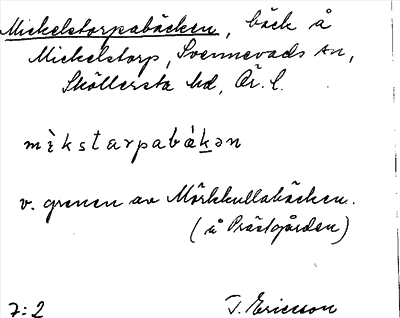 Mickelstorpabäcken, bäck å
Mickelstorp, Svennevads sn,
Sköllersta hd, Ör. l.
mìkstarpabǽkən
v. grenen av Mörkkullabäcken.
(å Prästgården)
7:2 T. Ericsson